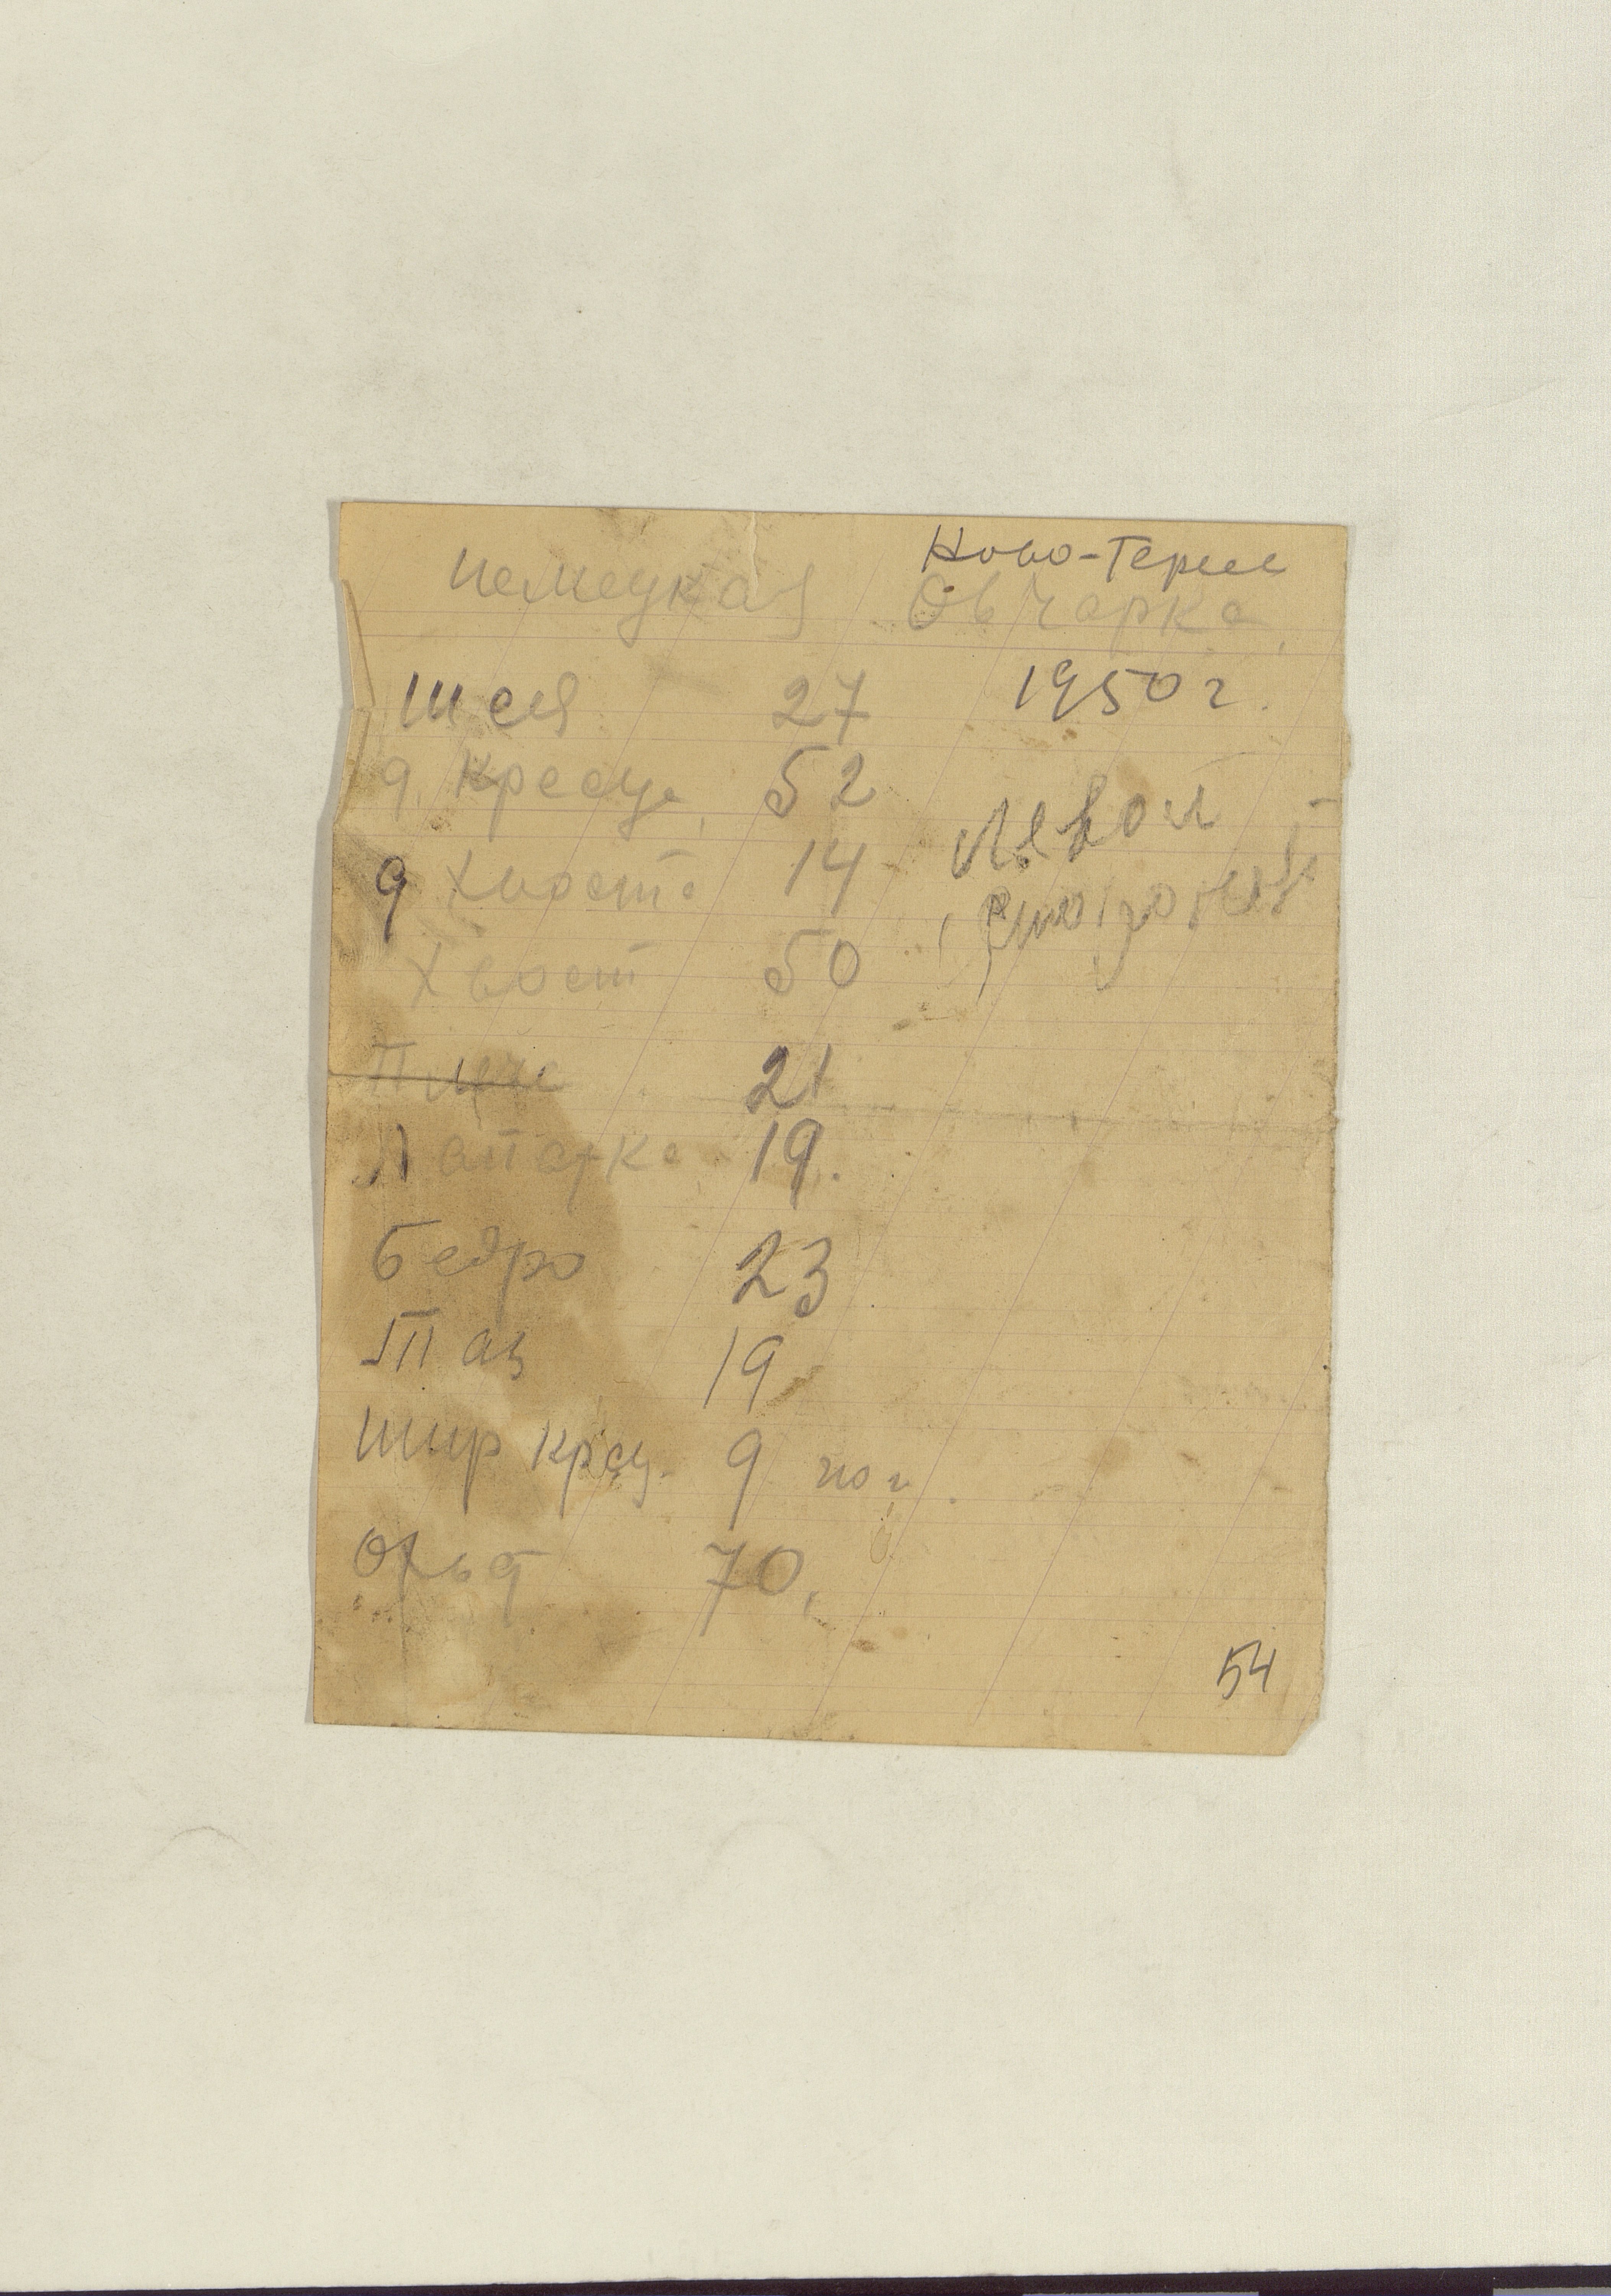 Ново-Терсе
немецкая Овчарка
Шея 27 1950 г.
д. Кресца 52
д хвоста 14 Левой
Хвост 50 стороны
Плече 21
Лапатка 19.
Бедро 23
Таз 19
Шир Крец. 9 ног
70.
54